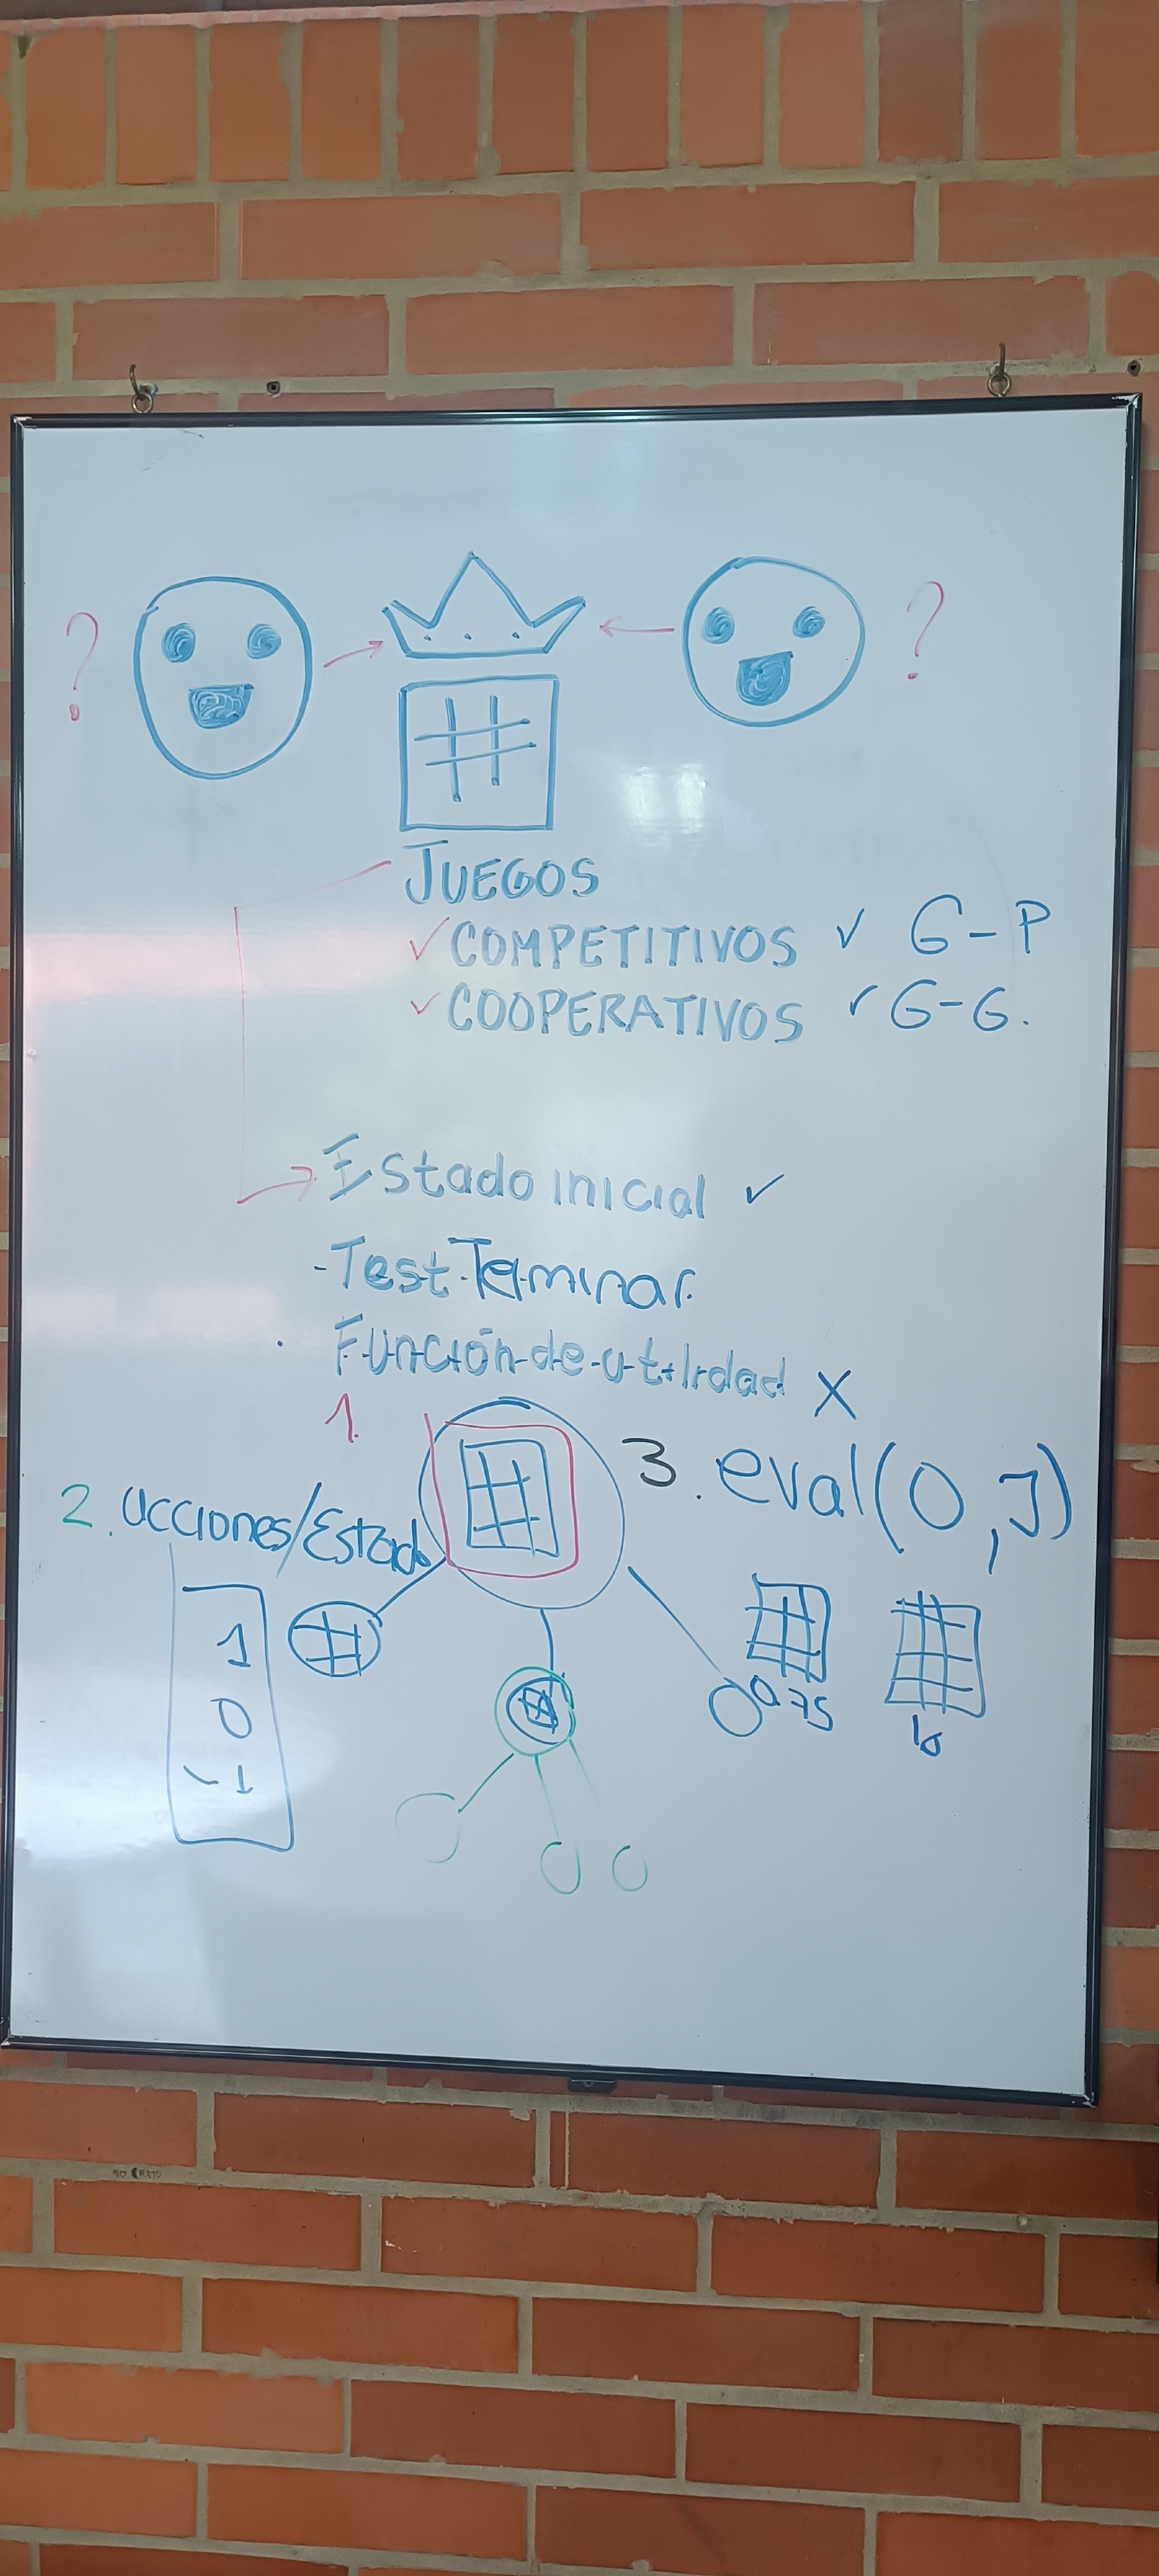 ? ?
JUEGOS
✓ COMPETITIVOS ✓ G-P
✓ COOPERATIVOS ✓ G-G.
Estado inicial ✓
-Test Terminar
Función-de-utilidad X
1.
3. eval(O,J)
2. acciones/Estado
1
0
-1
0.75